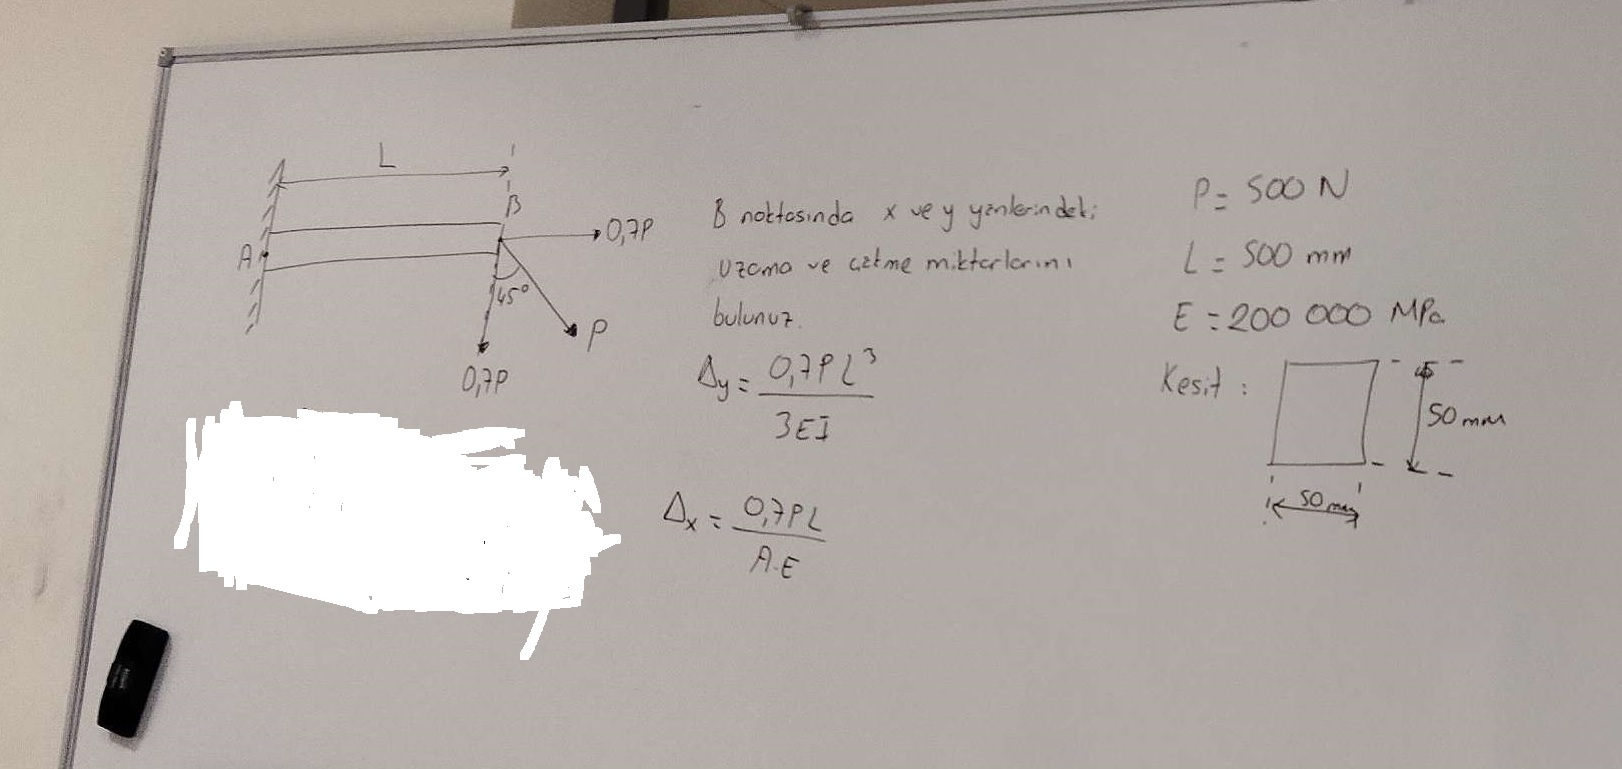 L
B
0,7P
A
45°
P
0,7P
B noktasında x ve y yönlerindeki
uzama ve çökme miktarlarını
bulunuz.
Δy = 0,7PL³
3EI
Δx = 0,7PL
A.E
P = 500 N
L = 500 mm
E = 200 000 MPa
Kesit :
50 mm
50 mm